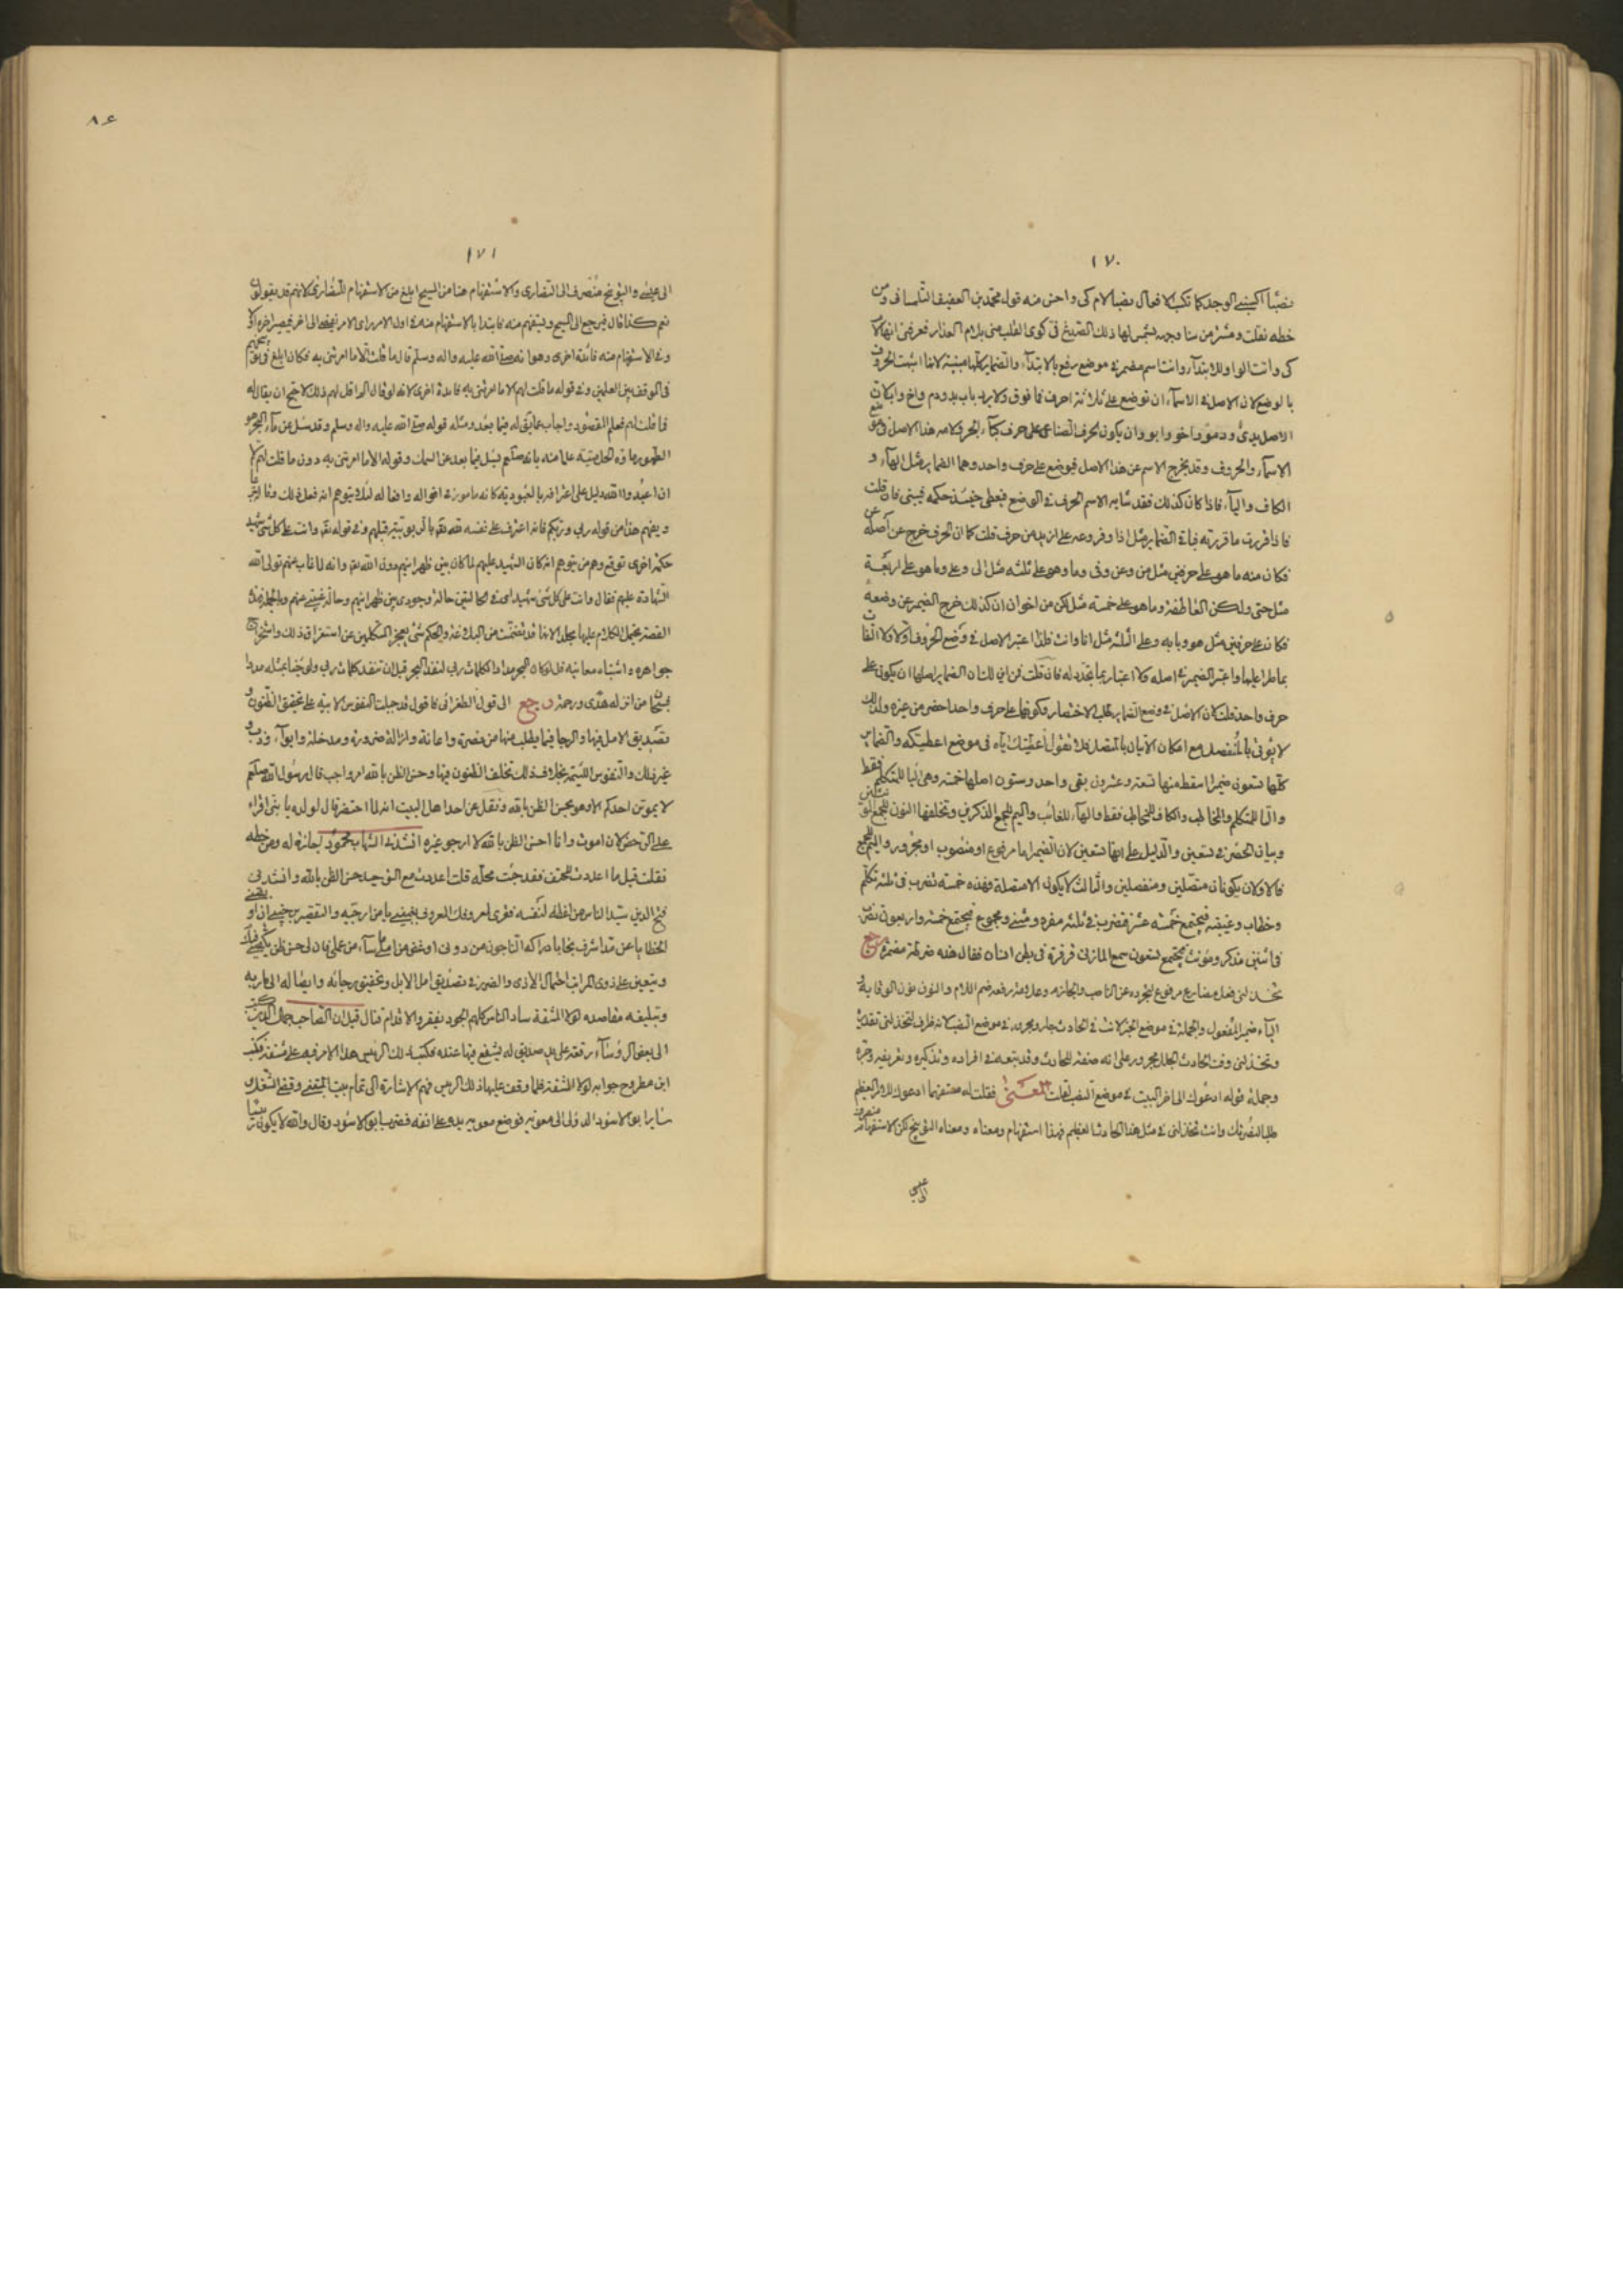 ١٧٠
نصبًا اكسبني الوجد كما تكسب الافعال نصبا لام كى واحسن منه قول محمد بن العفيف التلمسانى ومن
خطه نقلت ومستتر من سنا وجهه بشمس لها ذلك الصدغ فى كوى القلب منى بلام العذار فعرفنى انها لام
كى وانت الواو للابتداء وانت اسم مضمر فى موضع رفع بالابتداء والضماير كلها مبنية لانها اشبهت الحروف
بالوضع لان الاصل فى الاسماء ان توضع على ثلاثة احرف فما فوق ولا يرد باب يد ودم واخ واب لان
الاصل يدى ودمو واخو وابو وان يكون لحرف الصناعى على حرف كباء الجر ولامه هذا الاصل فى وضع
الاسماء والحروف وقد يخرج الاسم عن هذا الاصل فيوضع على حرف واحد وهما الضماير مثل الهاء و
الكاف والياء فاذا كان كذلك فقد شابه الاسم الحرف فى الوضع فيعطى حينئذ حكمه فيبنى فان قلت
فاذا قررت ما قررته فباقى الضماير مثل اذا وفروعه على ازيد من حرف قلت كما ان الحرف خرج عن اصله
فكان منه ما هو على حرفين مثل من وعن وفى وما وهو على ثلثه مثل الى وعلى وما هو على اربعة
مثل حتى ولكن العاطفة وما هو على خمسة مثل لكن من اخوان ان كذلك خرج الضمير عن وضعه
فكان على حرفين مثل هو وبابه وعلى الثلثه مثل انا وانت فلذا اعتبر الاصل فى وضع الحروف اولا ولا التفات
بما طرا عليها واعتبر الضمير فى اصله ولا اعتبار بما تجدد له فان قلت فمن اين لك ان الضماير اصلها ان يكون على
حرف واحد قلت لان الاصل فى وضع الضماير طلب الاختصار وكونها على حرف واحد اخصر من غيره ولذلك
لا يؤتى بالمنفصل مع امكان الاتيان بالمتصل فلا تقول اعطيتك اياه فى موضع اعطيتكه والضماير
كلها تسعون ضميرا سقط منها تسعة وعشرون بقى واحد وستون اصلها خمسة وهى اليا للمتكلم فقط
والتا للمتكلم والمخاطب والكاف للمخاطب فقط والهاء للغائب والميم للجمع المذكر وتخلفها النون للجمع المؤنث
وبيان الحصر فى تسعين والدليل على انها تسعين لان الضمير اما مرفوع او منصوب او مجرور
فالاولان يكونان متصلين ومنفصلين والثالث لا يكون الا متصلا فهذه خمسة تضرب فى ثلثة تكلم
وخطاب وغيبة فيجتمع خمسة عشر فتضرب فى ثلثة مفرد ومثنى ومجموع فيجتمع خمسة واربعون تضرب
فى اثنين مذكر ومونث فيجتمع تسعون سمع المازنى قرقرة فى بطن انسان فقال هذه ضرطة مضمرة رجع
تخذلنى فعل مضارع مرفوع لتجرده عن الناصب والجازم وعلامة رفعه ضم اللام والنون نون الوقاية
الياء ضمير المفعول والجملة فى موضع الخبر لانت فى الحادث جار ومجرور فى موضع النصب لانه ظرف لتخذلنى تقديره
وتخذلنى وقت الحادث الجلل مجرور على انه صفة للحادث وقد تبعه فى افراده وتذكيره وتعريفه وجره
وجملة قوله ادعوك الى اخر البيت فى موضع النصب لقلت المعنى فقلت له مستفهما ادعوك للامر العظيم
طلبا لنصرتك وانت تخذلنى فى مثل هذا الحادث العظيم فهذا استفهام ومعناه التوبيخ لكن الاستفهام منصرف
الى عيسى
٨٦
١٧١
الى عيسى والتوبيخ منصرف الى النصارى والاستفهام هنا من المسيح ابلغ من الاستفهام للنصارى لانهم قد يقولون
نعم كذا قال فيرجع الى المسيح ويستفهم منه فابتدا بالاستفهام منه فى اول الامر
وفى الاستفهام منه فائدة اخرى وهو انه صلى الله عليه واله وسلم قال ما قلت الا ما امرتنى به فكان ابلغ فى توبيخهم
فى الموقف بين العلمين وفى قوله ما قلت لهم الا ما امرتنى به فايدة اخرى لانه لو قال لم اقل لهم ذلك لاحتج ان يقال له
فما قلت لهم فعلم المقصود واجاب عما بقى له فيما بعد ومثله قوله صلى الله عليه واله وسلم وقد سئل عن ماء البحر هو
الطهور ماؤه الحل ميتته علما منه بانه صلعم يسل فيما بعد عن السمك وقوله الا ما امرتنى به دون ما قلت لهم الا
ان اعبدوا الله دليل على اعترافه بالعبودية كانه مامور فى اقواله وافعاله لئلا يتوهم انه فعل ذلك
ويفهم هذا من قوله ربى وربكم فانه اعترف على نفسه لله تعالى بالربوبيته قبلهم وفى قوله تعالى وانت على كل شئ شهيد
حكمة اخرى توقع وهم من يتوهم انه كان الشهيد عليهم لما كان بين ظهرانيهم دون الله تعالى وانه لما غاب عنهم تولى الله
الشهادة عليهم فقال وانت على كل شئ شهيد اى فى الحالتين حالة وجودى بين ظهرانيهم وحالة غيبتى عنهم وبالجملة فهذه
القصة يحتمل الكلام عليها مجلدا لانها قد تضمنت من البلاغة والحكم شئ يعجز المتكلمين عن استغراق ذلك واستخراج
جواهره واشتباه معانيه قل لو كان البحر مدادا لكلمات ربى لنفد البحر قبل ان تنفد كلمات ربى ولو جئنا بمثله مددا
سبحان من انزله هدى ورحمة رجع الى قول الطغرائى فاقول قد جبلت النفوس الابية على تحقيق الظنون و
تصديق الامل فيها والرجا فيما يطلب منها من نصرة واعانة وازالة ضرورة ومدخلة وايواء وذب و
غير ذلك والنفوس اللئيمة بخلاف ذلك تخلف الظنون فيها وحسن الظن بالله امر واجب قال رسول الله صلعم
لا يموتن احدكم الا وهو يحسن الظن بالله ونقل عن احد اهل البيت انه لما احتضر قال لولده يا بنى اقراء
على الرخص لان اموت وانا احسن الظن بالله لا ارجو غيره انشدنى الشهاب محمود اجازة له ومن خطه
نقلت قيل ما اعددت للحتف فقد جئت محله قلت اعددت مع التوحيد حسن الظن بالله وانشدنى
فتح الدين سيد الناس من لفظه لنفسه
ويتعين على ذوى المراتب احتمال الاذى والضرر فى تصديق امل الامل وتحقيق رجائه وايصاله الى ماربه
وتبليغه مقاصده لولا المشقة ساد الناس كلهم الجود يفقر والاقدام قتال قيل ان الصاحب جمال الدين كتب
الى بعض الرؤساء رقعة على يد صديق له يشفع فيها عنده فكتب ذلك الرئيس هذا الامر فيه على مشقة فكتب
ابن مطروح جوابه لولا المشقة فلما وقف عليها ذلك الريس فهم الاشارة الى تمام بيت المتنبى وقضى الشغل
ساير ابو الاسود الدولى الى معويه فوضع معويه يده على انفه وقال والله لا يكون